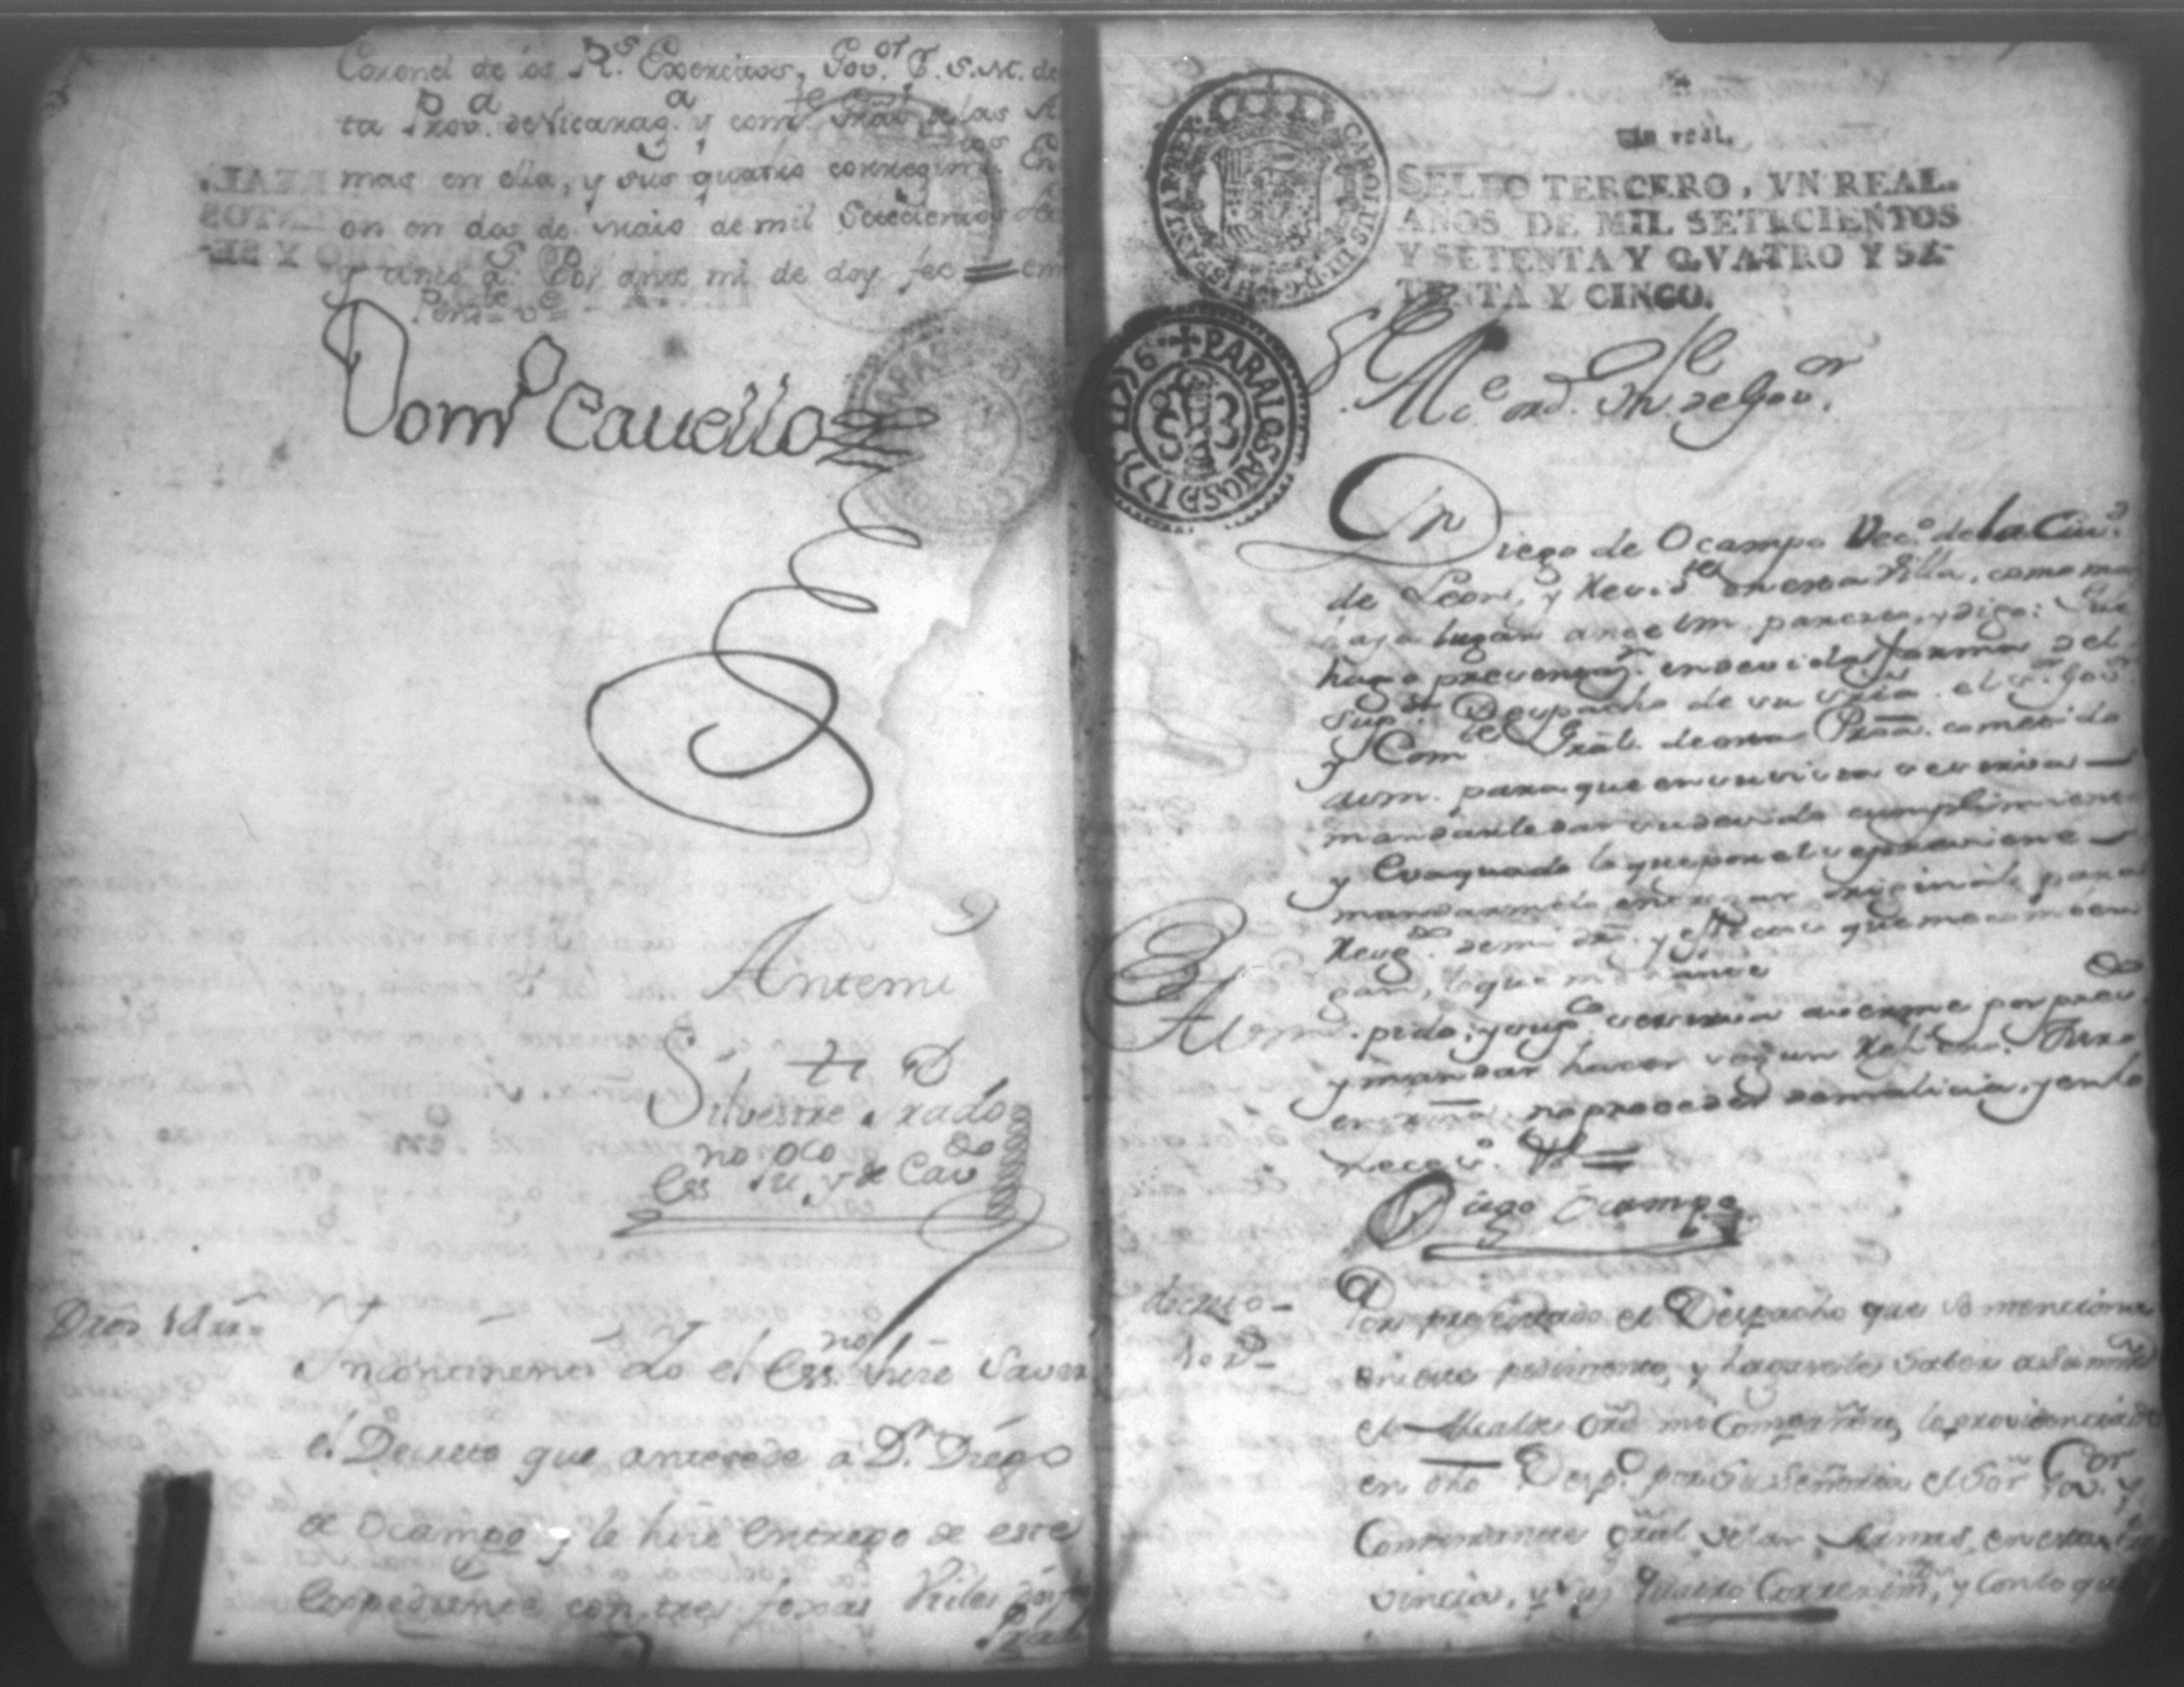 Coronel de los Rs. Exercitos, Govor. P. S.M. de
ta Prova. de Nicarag.a y comte. Gral. de las Ar
mas en ella, y sus quatro corregimtos. Le
on en dos de maio de mil Setecientos
y cinco as. Por ante mi de doy fee = em
Domo. Cauello
Antemi
Silvestre
Essno. pu.co y de Cavdo
Incontinenti Yo el Essno. hize Saver
el Decreto que antecede á Dn. Diego
de Ocampo y le hize Entrego de este
Expediente con tres foxas Vtiles
Vn real.
SELLO TERCERO, VN REAL.
AÑOS DE MIL SETECIENTOS
Y SETENTA Y QVATRO Y SE-
TENTA Y CINCO.
CAROLUS III D G HISPANIAR REX
PARA LOS AÑOS D 1775 Y 1776
Sr. Alce. ord. Th.e de Govor.
Dn Diego de Ocampo Veco. de la Ciud.
de Leon, y Resid.te en esta Villa, como mas
aya lugar ante Vm. paresco, y digo: Que
hago presentazn. en devida forma del
Supor. Despacho de su Sria. el Sr. Govor.
y Comte. Gral. de esta Proa. cometido
a Vm. para que en su vista se sirva
mandarle dar su devido cumplimient
y Evaquado lo que por el se previene
mandarmelo entregar original para
Resg.do de mi dro. y efectos que me combem
gan, lo que mediante
A Vm. pido, y supco. se sirva averme por presdo.
y mandar hacer segun Refiero. Juro
en forma no proceder de malicia, y en lo
neceso. Va =
Diego Ocampo
decreto
Por presentado el Despacho que se menciona
en este pedimento, y hagasele saber a su mrd
el Alcalde Ordo. mi Compañero, lo providenciado
en dho Despo. por su Señoria el Sor Govor. y
Comandante Gral de las Armas, en esta Pro
vincia, y sus quatro Corregimtos, y con lo que